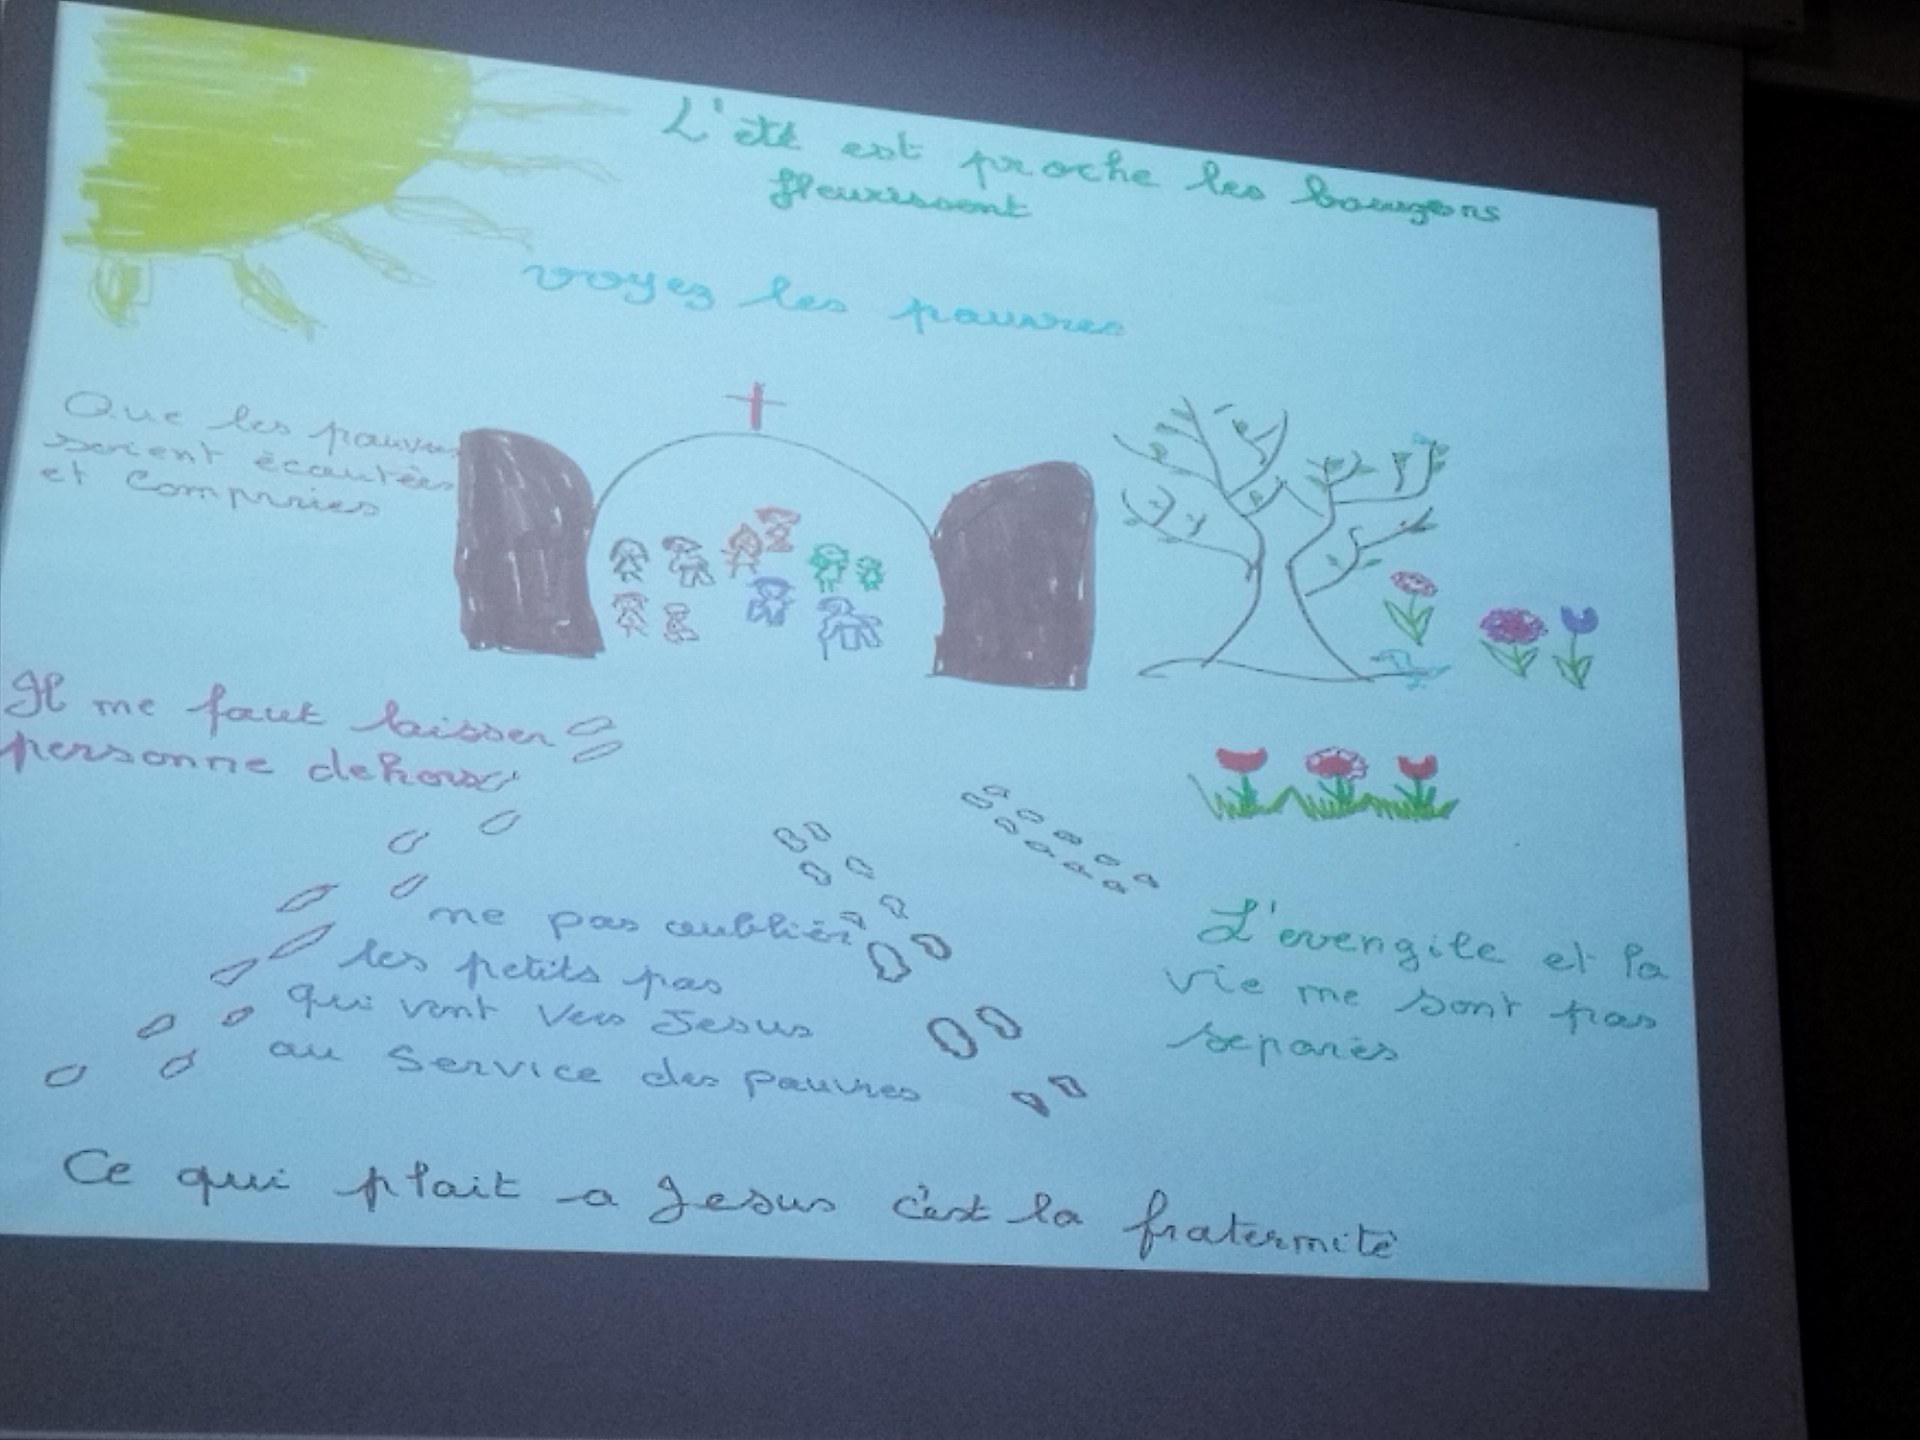 L'été est proche les bourgons
fleurissent
voyez les pauvres
Que les pauvres
soient écoutées
et compries
Il me faut laisser
personne dehors
ne pas oublier
les petits pas
qui vont vers Jesus
au service des pauvres
L'evengile et la
vie me sont pas
separés
Ce qui plait a Jesus c'est la fraternité